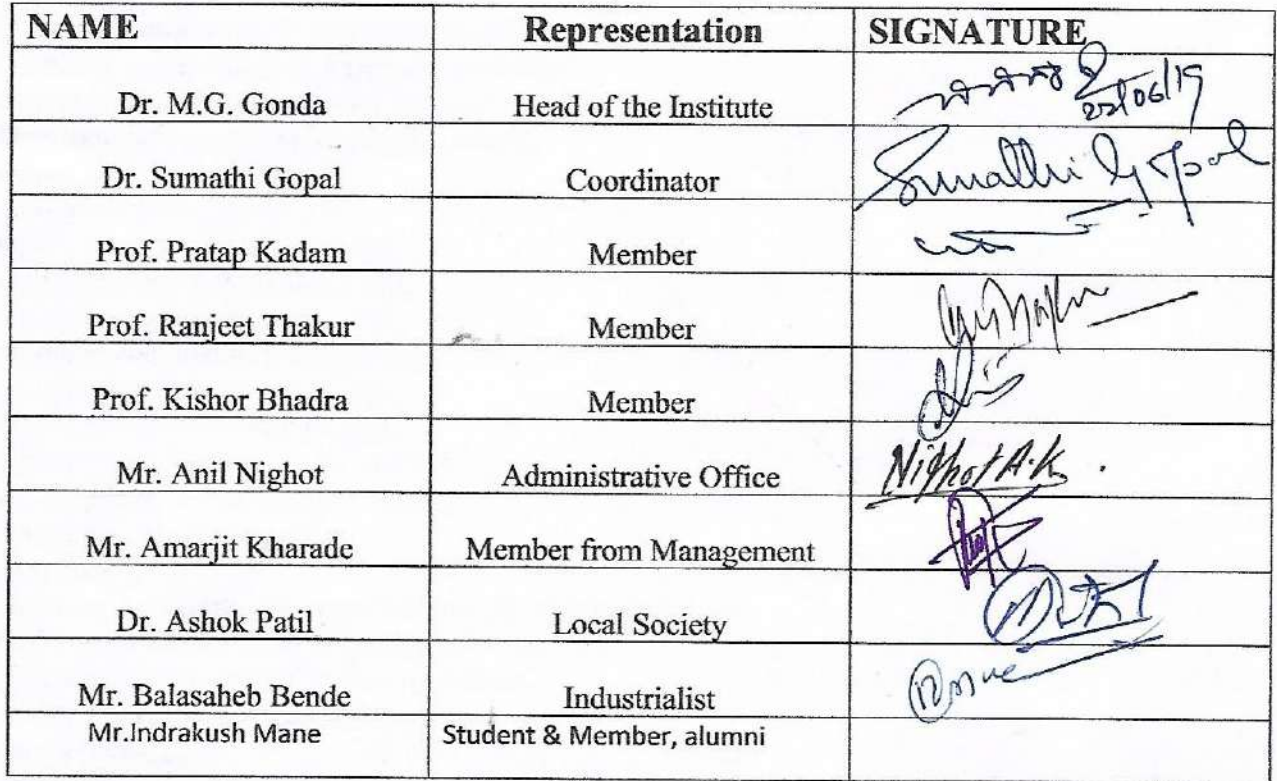 NAME Representation SIGNATURE
Dr. M.G. Gonda Head of the Institute 22/06/19
Dr. Sumathi Gopal Coordinator Sumathi Gopal
Prof. Pratap Kadam Member
Prof. Ranjeet Thakur Member
Prof. Kishor Bhadra Member
Mr. Anil Nighot Administrative Office Nighot A.K.
Mr. Amarjit Kharade Member from Management
Dr. Ashok Patil Local Society
Mr. Balasaheb Bende Industrialist
Mr.Indrakush Mane Student & Member, alumni